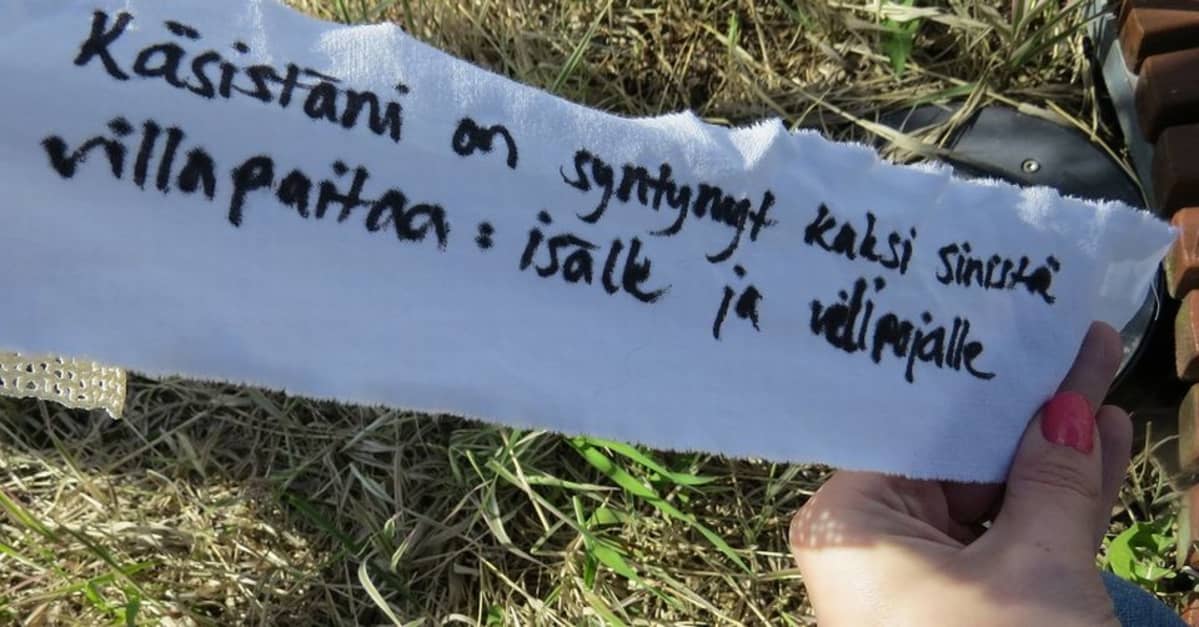 Käsistäni on syntynyt kaksi sinistä
villapaitaa : isälle ja velipojalle